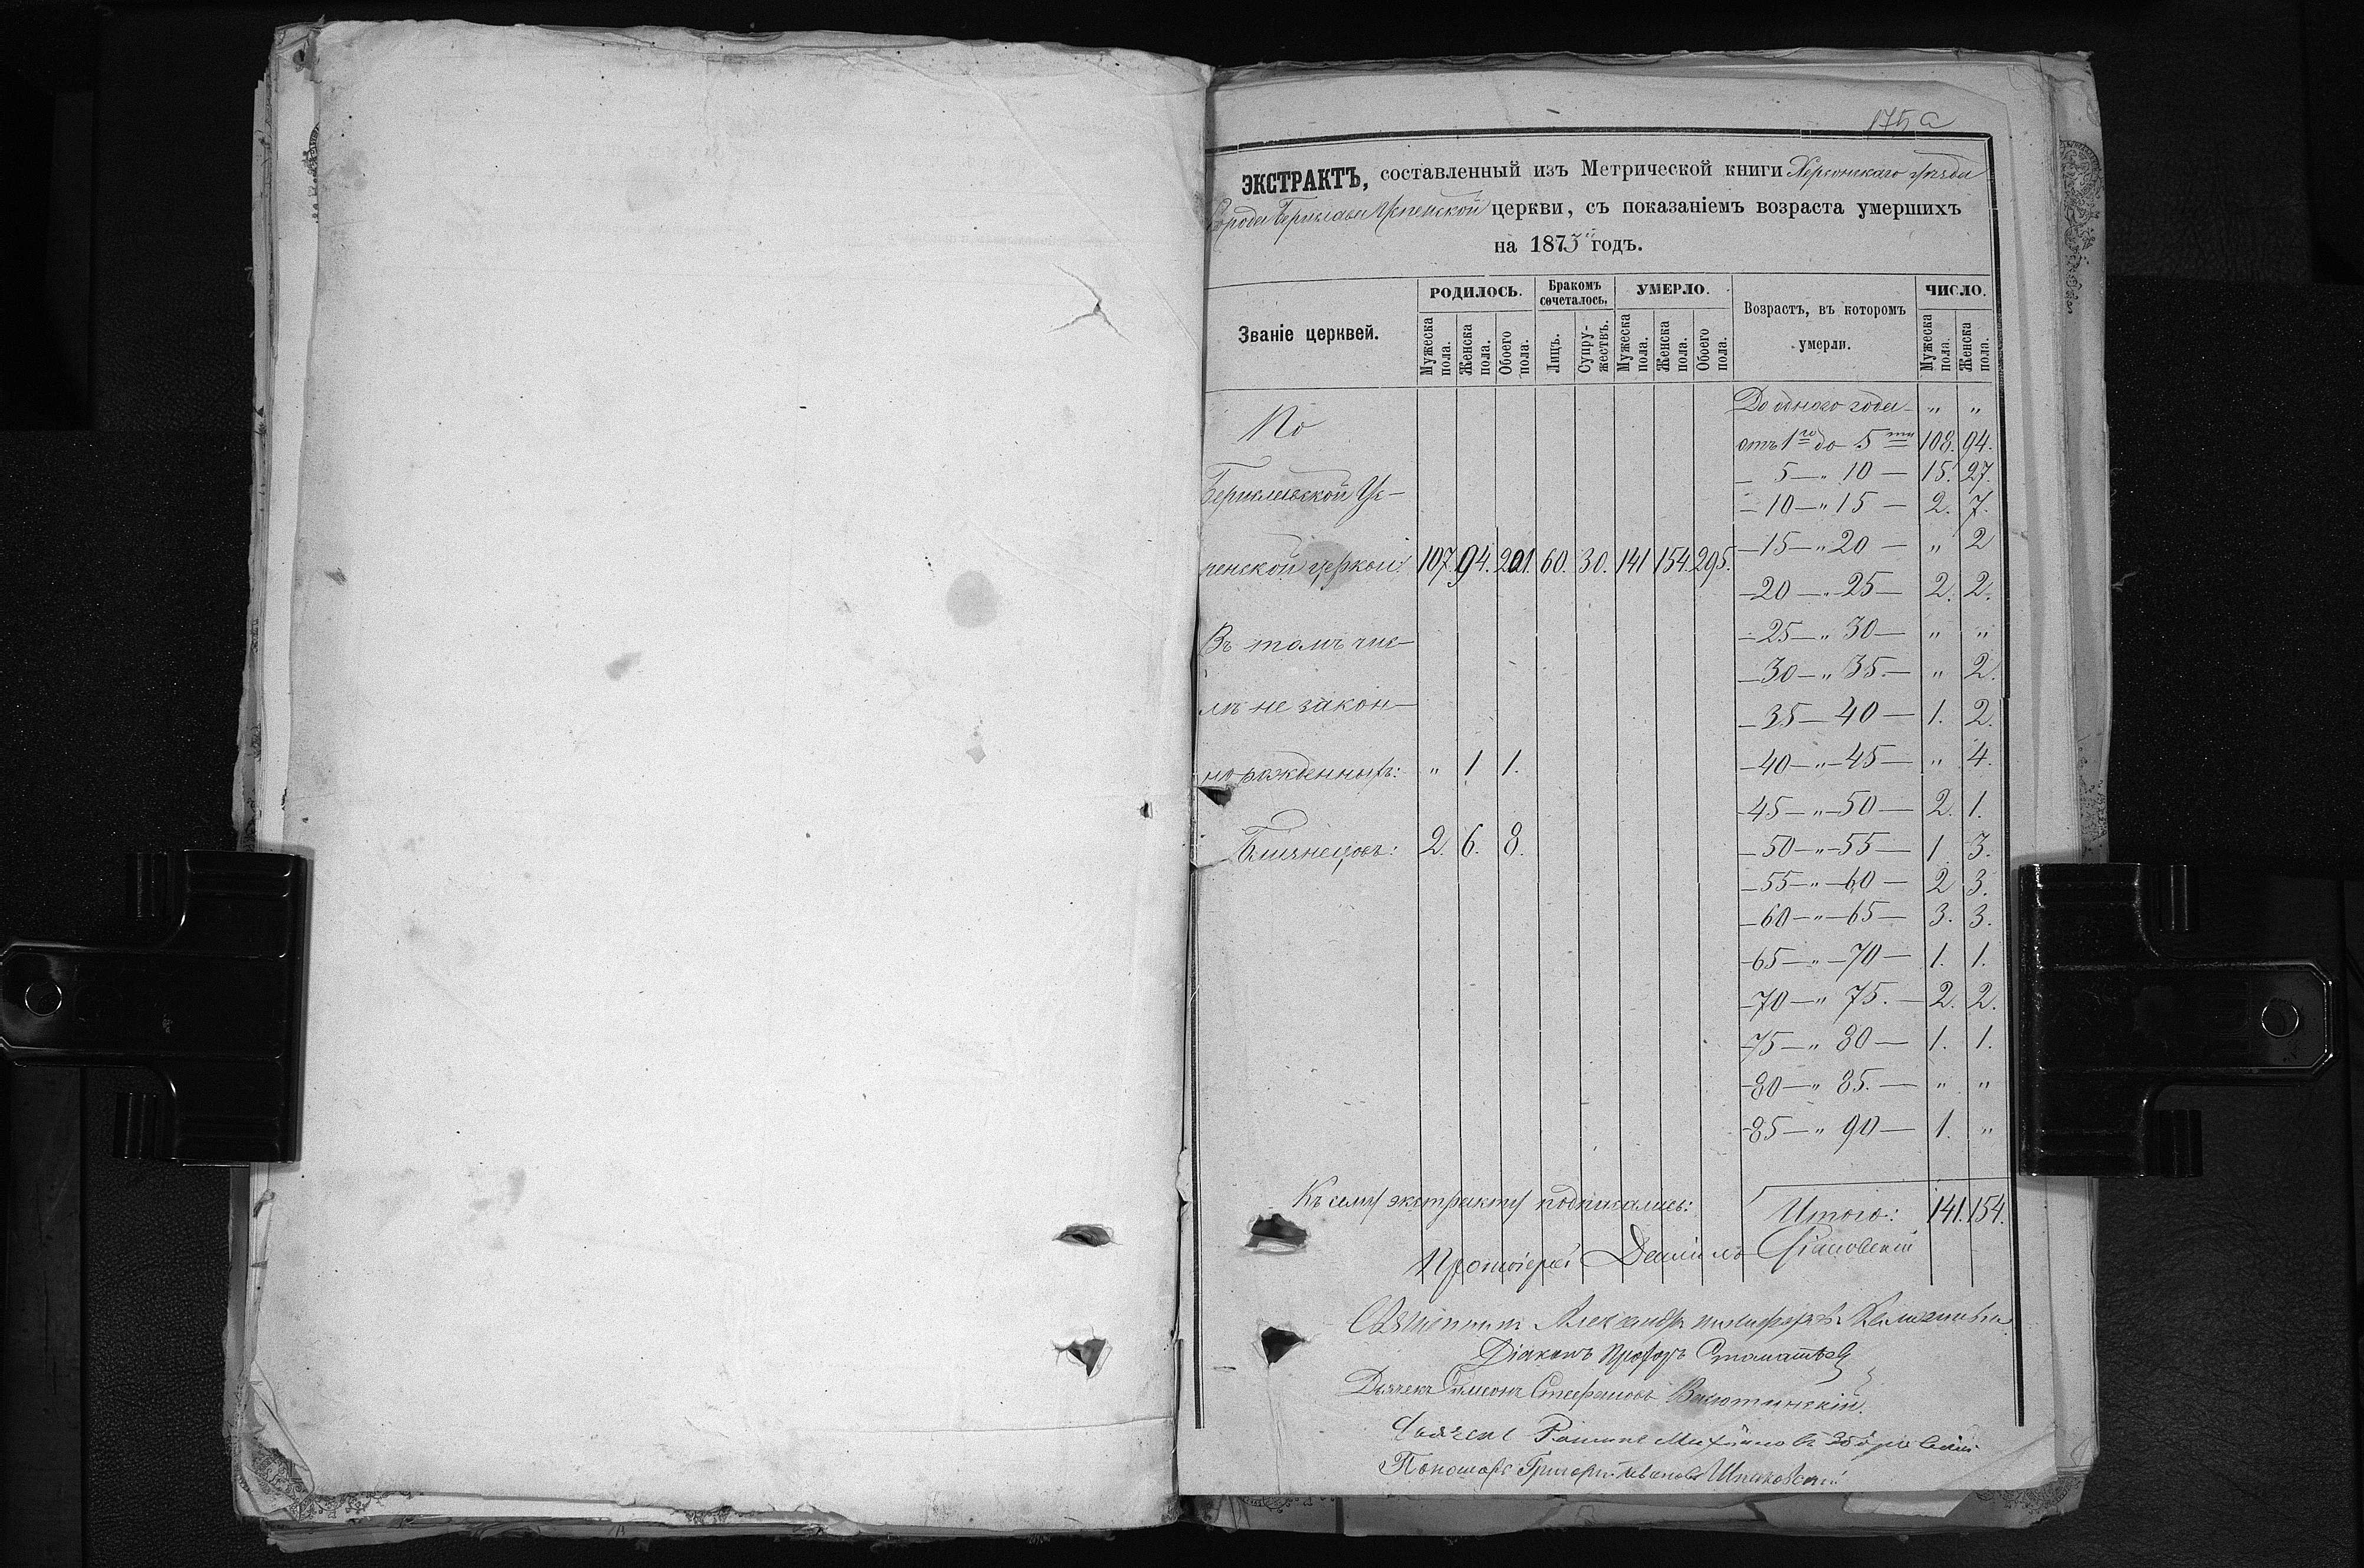 175 а
ЭКСТРАКТЪ, составленный изъ Метрической книги Херсонскаго уѣзда
Города Берислава Успенской церкви, съ показаніемъ возраста умершихъ
на 1873й годъ.
Званіе церквей.
РОДИЛОСЬ.
Мужеска пола.
Женска пола.
Обоего пола.
Бракомъ сочеталось.
Лицъ.
Супружествъ.
УМЕРЛО.
Мужеска пола.
Женска пола.
Обоего пола.
Возрастъ, въ которомъ умерли.
ЧИСЛО.
Мужеска пола.
Женска пола.
По
Бериславской Ус-
пенской церкви: 107. 94. 201. 60. 30. 141 154 295.
Въ томъ чис-
лѣ не закон-
но рожденныхъ: " 1 1.
Близнецовъ: 2. 6. 8.
До одного года - " "
отъ 1го до 5ти 108. 94.
— 5 — " 10 — 15. 27.
— 10 — " 15 — 2. 7.
— 15 — " 20 — " 2
— 20 — " 25 — 2. 2.
— 25 — " 30 — " "
— 30 — " 35. — " 2.
— 35 — 40 — 1. 2.
— 40 — " — 45 — " 4.
45 — " — 50 — 2. 1.
— 50 — " — 55 — 1. 3.
— 55 — " — 60 — 2 3.
— 60 — " — 65 — 3. 3.
— 65 — " — 70 — 1. 1.
— 70 — " 75. — 2. 2.
— 75 — " 80 — 1. 1.
— 80 — " 85. — " "
— 85 — " 90 — 1. "
Итого: 141. 154.
Къ сему экстракту подписались:
Протоіерей Даніилъ
Священникъ Александръ
Діаконъ Прохоръ
Дьячекъ Симеонъ Стефановъ
Михайловъ
Пономарь Григорій Ивановъ Шпаковскій